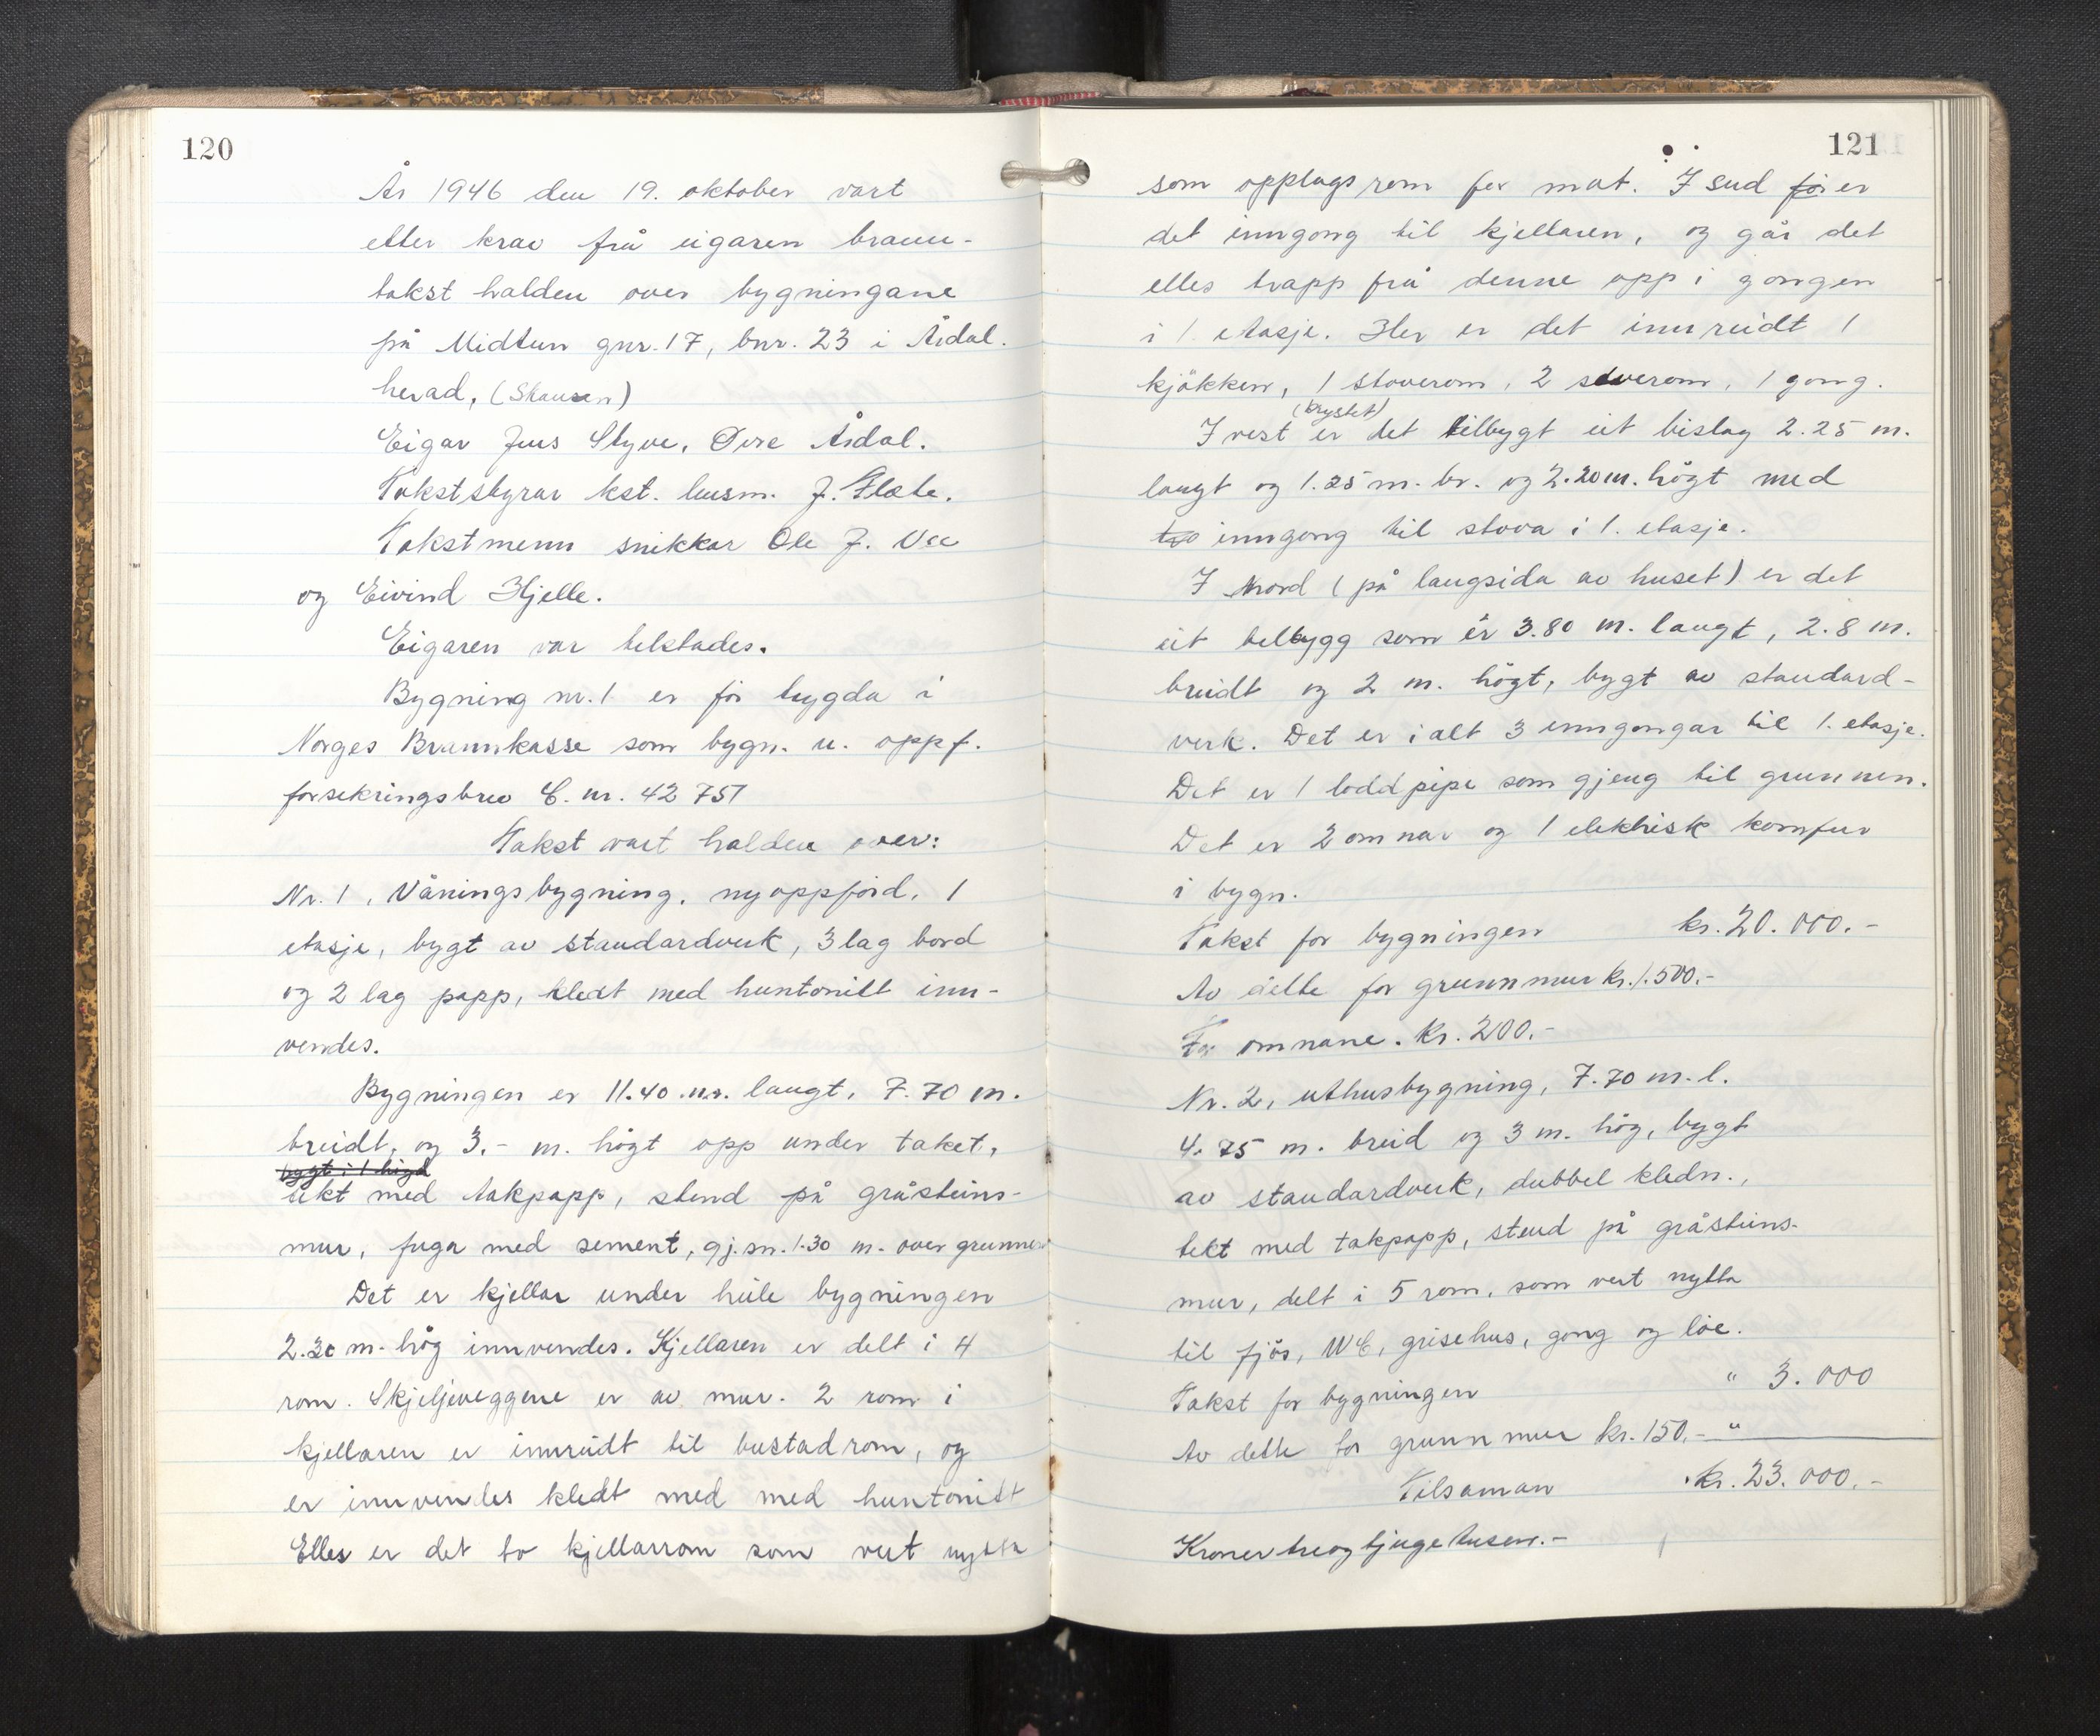 120
År 1946 den 19. oktober vart
etter krav frå eigaren brann-
takst halden over bygningane
på Midtun gnr. 17, bnr. 23 i Årdal
herad, (Skausen)
Eigar Jens Styve, Øvre Årdal.
Takststyrar kst. lensm. J. Flæte.
Takstmenn snikkar Ole J. Vee
og Eivind Hjelle.
Eigaren var telstades.
Bygning nr. 1 er før trygda i
Norges Brannkasse som bygn. u. oppf.
forsekringsbrev C. nr. 42751
Takst vart halden over:
Nr. 1, Våningsbygning, nyoppførd, 1
etasje, bygt av standardverk, 3 lag bord
og 2 lag papp, kledt med huntonitt inn-
vendes.
Bygningen er 11.40 m. langt, 7.70 m.
breidt, og 3.- m. høgt opp under taket,
bygt i 1 høgd
tekt med takpapp, stend på gråsteins-
mur, fuga med sement, gj.sn. 1.30 m. over grunnen
Det er kjellar under heile bygningen
2.30 m. høg innvendes. Kjellaren er delt i 4
rom. Skjeljeveggene er av mur. 2 rom i
kjellaren er innreidt til bustadrom, og
er innvendes kledt med med huntonitt
Elles er det to kjellarrom som vert nytta
121
som opplagsrom for mat. I sud før er
det inngong til kjellaren, og går det
elles trapp frå denne opp i gongen
i 1. etasje. Her er det innreidt 1
kjøkken, 1 stoverom, 2 soverom, 1 gong.
(brystet)
I vest er det tilbygt eit bislag 2.25 m.
langt og 1.25 m. br. og 2.20 m. høgt med
to inngong til stova i 1. etasje.
I Nord (på langsida av huset) er det
eit telbygg som er 3.80 m. langt, 2.8 m.
breidt og 2 m. høgt, bygt av standard-
verk. Det er i alt 3 inngongar til 1. etasje.
Det er 1 loddpipe som gjeng til grunnen.
Det er 2 omnar og 1 elektrisk komfur
i bygn.
Takst for bygningen kr. 20.000.-
Av dette for grunnmur kr. 1.500.-
For omnane. kr. 200.-
Nr. 2, uthusbygning, 7.70 m. l.
4.75 m. breid og 3 m. høg, bygt
av standardverk, dubbel kledn.,
tekt med takpapp, stend på gråsteins-
mur, delt i 5 rom, som vert nytta
til fjøs, WC, grisehus, gong og løe.
Takst for bygningen " 3.000
Av dette for grunnmur kr. 150.- "
Tilsaman kr. 23.000.-
Kroner treogtjugetusen.-